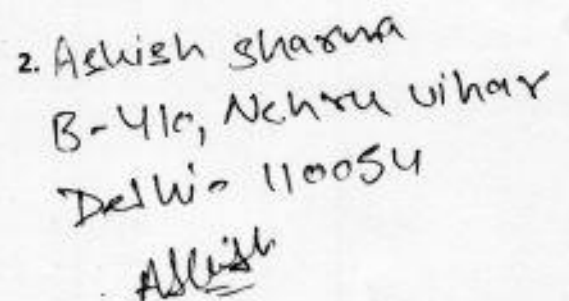 2. Ashish Sharma
B-410, Nehru vihar
Delhi- 110054
Ashish